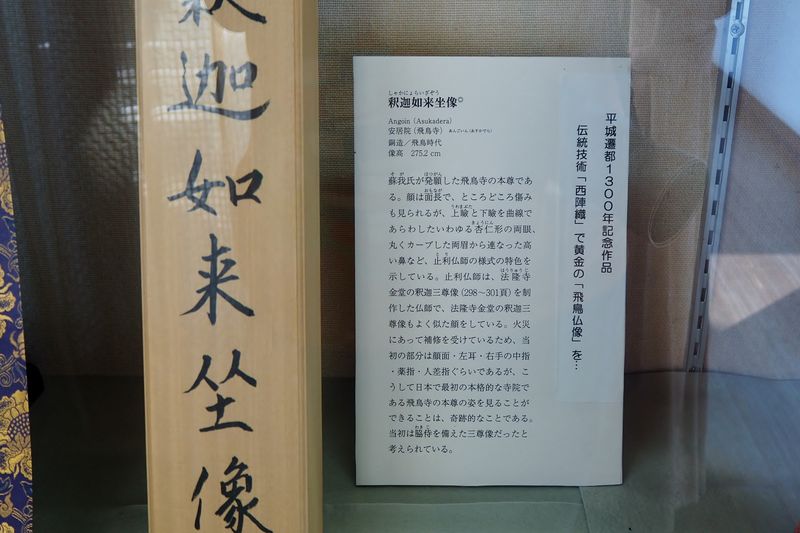 釈迦如来坐像
平城遷都1300年記念作品
伝統技術「西陣織」で黄金の「飛鳥仏像」を…
しゃかにょらいざぞう
釈迦如来坐像
Angoin (Asukadera)
安居院（飛鳥寺） あんごいん（あすかでら）
銅造／飛鳥時代
像高 275.2 cm
蘇我氏が発願した飛鳥寺の本尊であ
る。顔は面長で、ところどころ傷み
も見られるが、上瞼と下瞼を曲線で
あらわしたいわゆる杏仁形の両眼、
丸くカーブした両眉から連なった高
い鼻など、止利仏師の様式の特色を
示している。止利仏師は、法隆寺
金堂の釈迦三尊像（298〜301頁）を制
作した仏師で、法隆寺金堂の釈迦三
尊像もよく似た顔をしている。火災
にあって補修を受けているため、当
初の部分は顔面・左耳・右手の中指
・薬指・人差指ぐらいであるが、こ
うして日本で最初の本格的な寺院で
ある飛鳥寺の本尊の姿を見ることが
できることは、奇跡的なことである。
当初は脇侍を備えた三尊像だったと
考えられている。